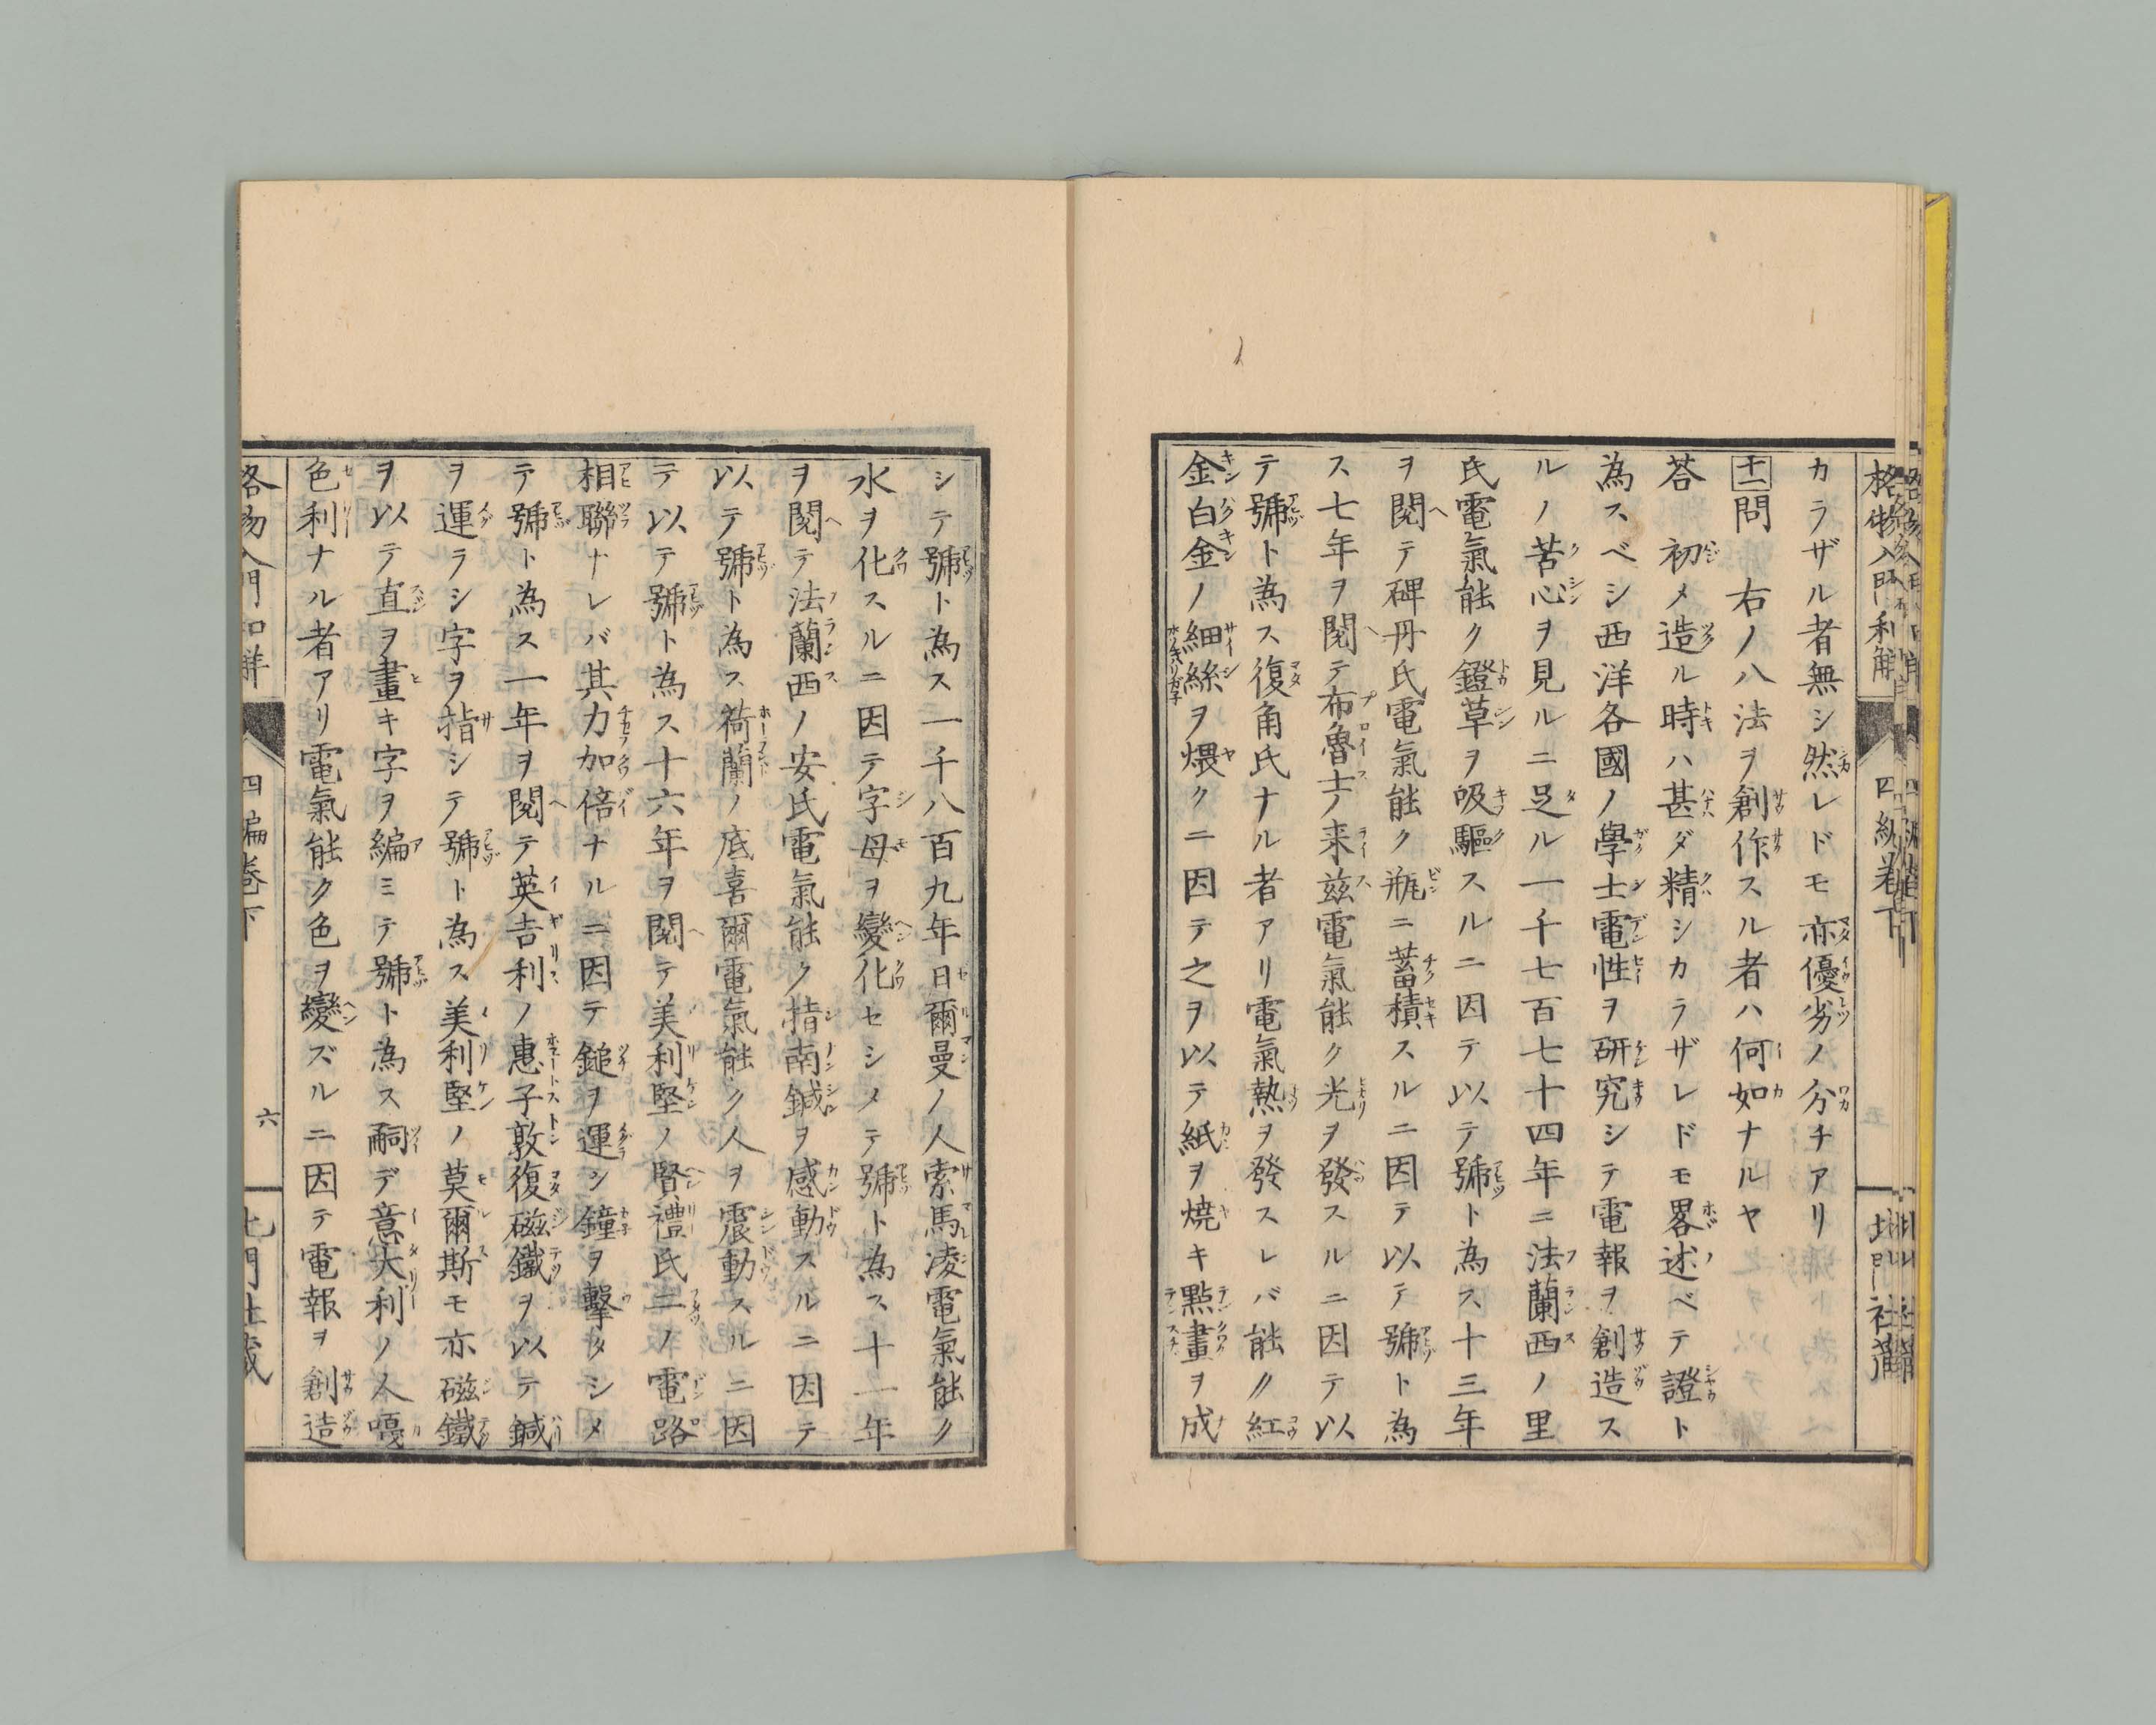 カラザル者無シ然レドモ亦優劣ノ分チアリ
十一問　右ノ八法ヲ創作スル者ハ何如ナルヤ
荅　初メ造ル時ハ甚ダ精シカラザレドモ畧述ベテ證ト
為スベシ西洋各國ノ學士電性ヲ研究シテ電報ヲ創造ス
ルノ苦心ヲ見ルニ足ル一千七百七十四年ニ法蘭西ノ里
氏電氣能ク鐙草ヲ吸驅スルニ因テ以テ號ト為ス十三年
ヲ閱テ碑丹氏電氣能ク瓶ニ蓄積スルニ因テ以テ號ト為
ス七年ヲ閱テ布魯士ノ来茲電氣能ク光ヲ發スルニ因テ以
テ號ト為ス復角氏ナル者アリ電氣熱ヲ發スレバ能〃紅
金白金ノ細絲ヲ煨クニ因テ之ヲ以テ紙ヲ焼キ點畫ヲ成
シテ號ト為ス一千八百九年日爾曼ノ人索馬凌電氣能ク
水ヲ化スルニ因テ字母ヲ變化セシメテ號ト為ス十一年
ヲ閱テ法蘭西ノ安氏電氣能ク指南鍼ヲ感動スルニ因テ
以テ號ト為ス荷蘭ノ底喜爾電氣能ク人ヲ震動スルニ因
テ以テ號ト為ス十六年ヲ閱テ美利堅ノ賢禮氏二ノ電路
相聯ナレバ其力加倍ナルニ因テ鎚ヲ運シ鐘ヲ擊タシメ
テ號ト為ス一年ヲ閱テ英吉利ノ惠子敦復磁鐵ヲ以テ鍼
ヲ運ラシ字ヲ指シテ號ト為ス美利堅ノ莫爾斯モ亦磁鐵
ヲ以テ直ヲ畫キ字ヲ編ミテ號ト為ス嗣デ意大利ノ人嘎
色利ナル者アリ電氣能ク色ヲ變ズルニ因テ電報ヲ創造
格物入門和解　四編巻下　六　北門社蔵